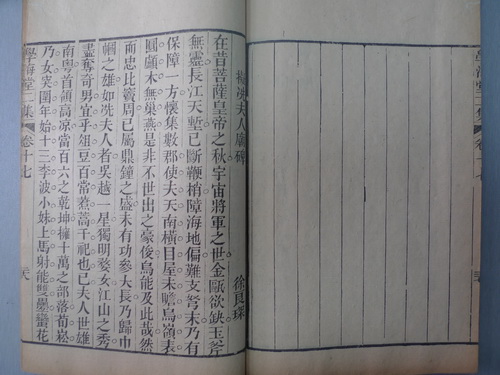 學海堂二集
卷十七
擬冼夫人廟碑
徐良琛
在昔菩薩皇帝之秋宇宙將軍之世金甌欲缺玉斧
無靈長江天塹已斷鞭梢障海地偏難支弩末乃有
保障一方懷集數郡使夫天南橫目屋未瞻烏嶺表
圓顱木無巢燕是非不世出之豪俊烏能及此哉然
而忠比竇周已屬鼎鐘之盛未有功參大長乃歸巾
幗之雄如冼夫人者吳越一星獨明婺女江山之秀
盡奪奇男宜乎俎豆百常焄蒿千祀也已夫人世雄
南粵首領高涼當百六之乾坤擁十萬之部落荀崧
乃女突圍年始十三李波小妹上馬射能雙疊蠻花
學海堂二集
卷十七